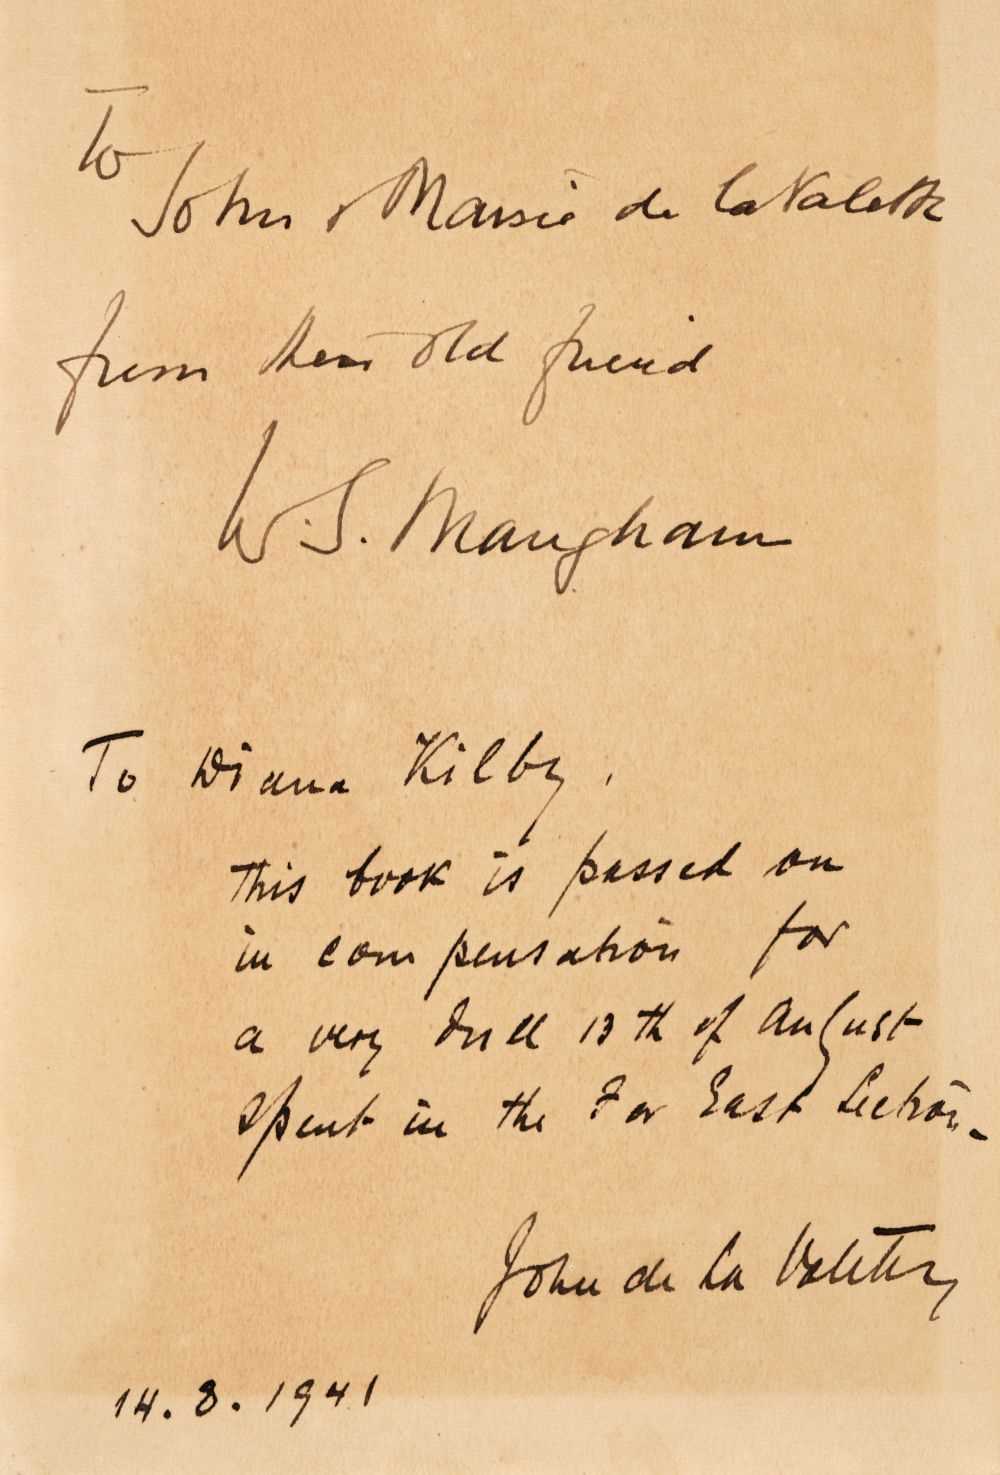 To
John & Maisie de la Valette
from their old friend
W.S. Maugham
To Diana Kilby,
this book is passed on
in compensation for
a very dull 13th of August
spent in the Far East Section.
John de La Valette,
14.8.1941